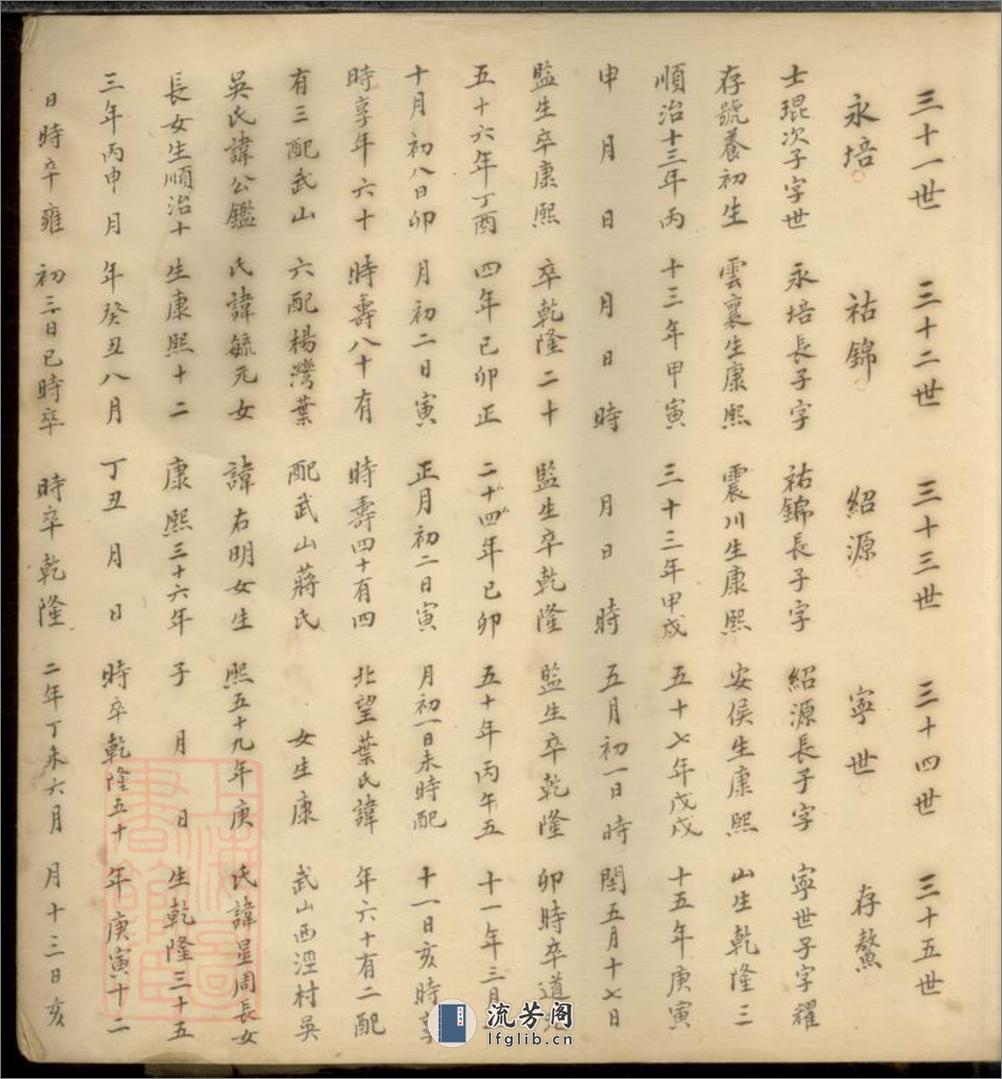 三十一世
永培
士琨次子字世
存號養初生
順治十三年丙
申　月　日
監生卒康熙
五十六年丁酉
十月初八日卯
時享年六十
有三配武山
吳氏諱公鑑
長女生順治十
三年丙申　月
日時卒雍
三十二世
祜錦
永培長子字
雲襄生康熙
十三年甲寅
月　日　時
卒乾隆二十
四年己卯正
月初二日寅
時壽八十有
六配楊灣葉
氏諱毓元女
生康熙十二
年癸丑八月
初三日巳時卒
三十三世
紹源
祜錦長子字
震川生康熙
三十三年甲戌
月　日　時
監生卒乾隆
二十四年己卯
正月初二日寅
時壽四十有四
配武山蔣氏
諱右明女生
康熙三十六年
丁丑　月　日
時卒乾隆
三十四世
寧世
紹源長子字
安侯生康熙
五十七年戊戌
五月初一日時
監生卒乾隆
五十年丙午五
月初一日未時配
北望葉氏諱
女生康
熙五十九年庚
子　月　日
時卒乾隆五十
二年丁未六月
三十五世
存鰲
寧世子字耀
山生乾隆三
十五年庚寅
閏五月十七日
卯時卒道
十一年三月
十一日亥時享
年六十有二配
武山西涇村吳
氏諱星周長女
生乾隆三十五
年庚寅十二
月十三日亥
流芳阁
lfglib.cn